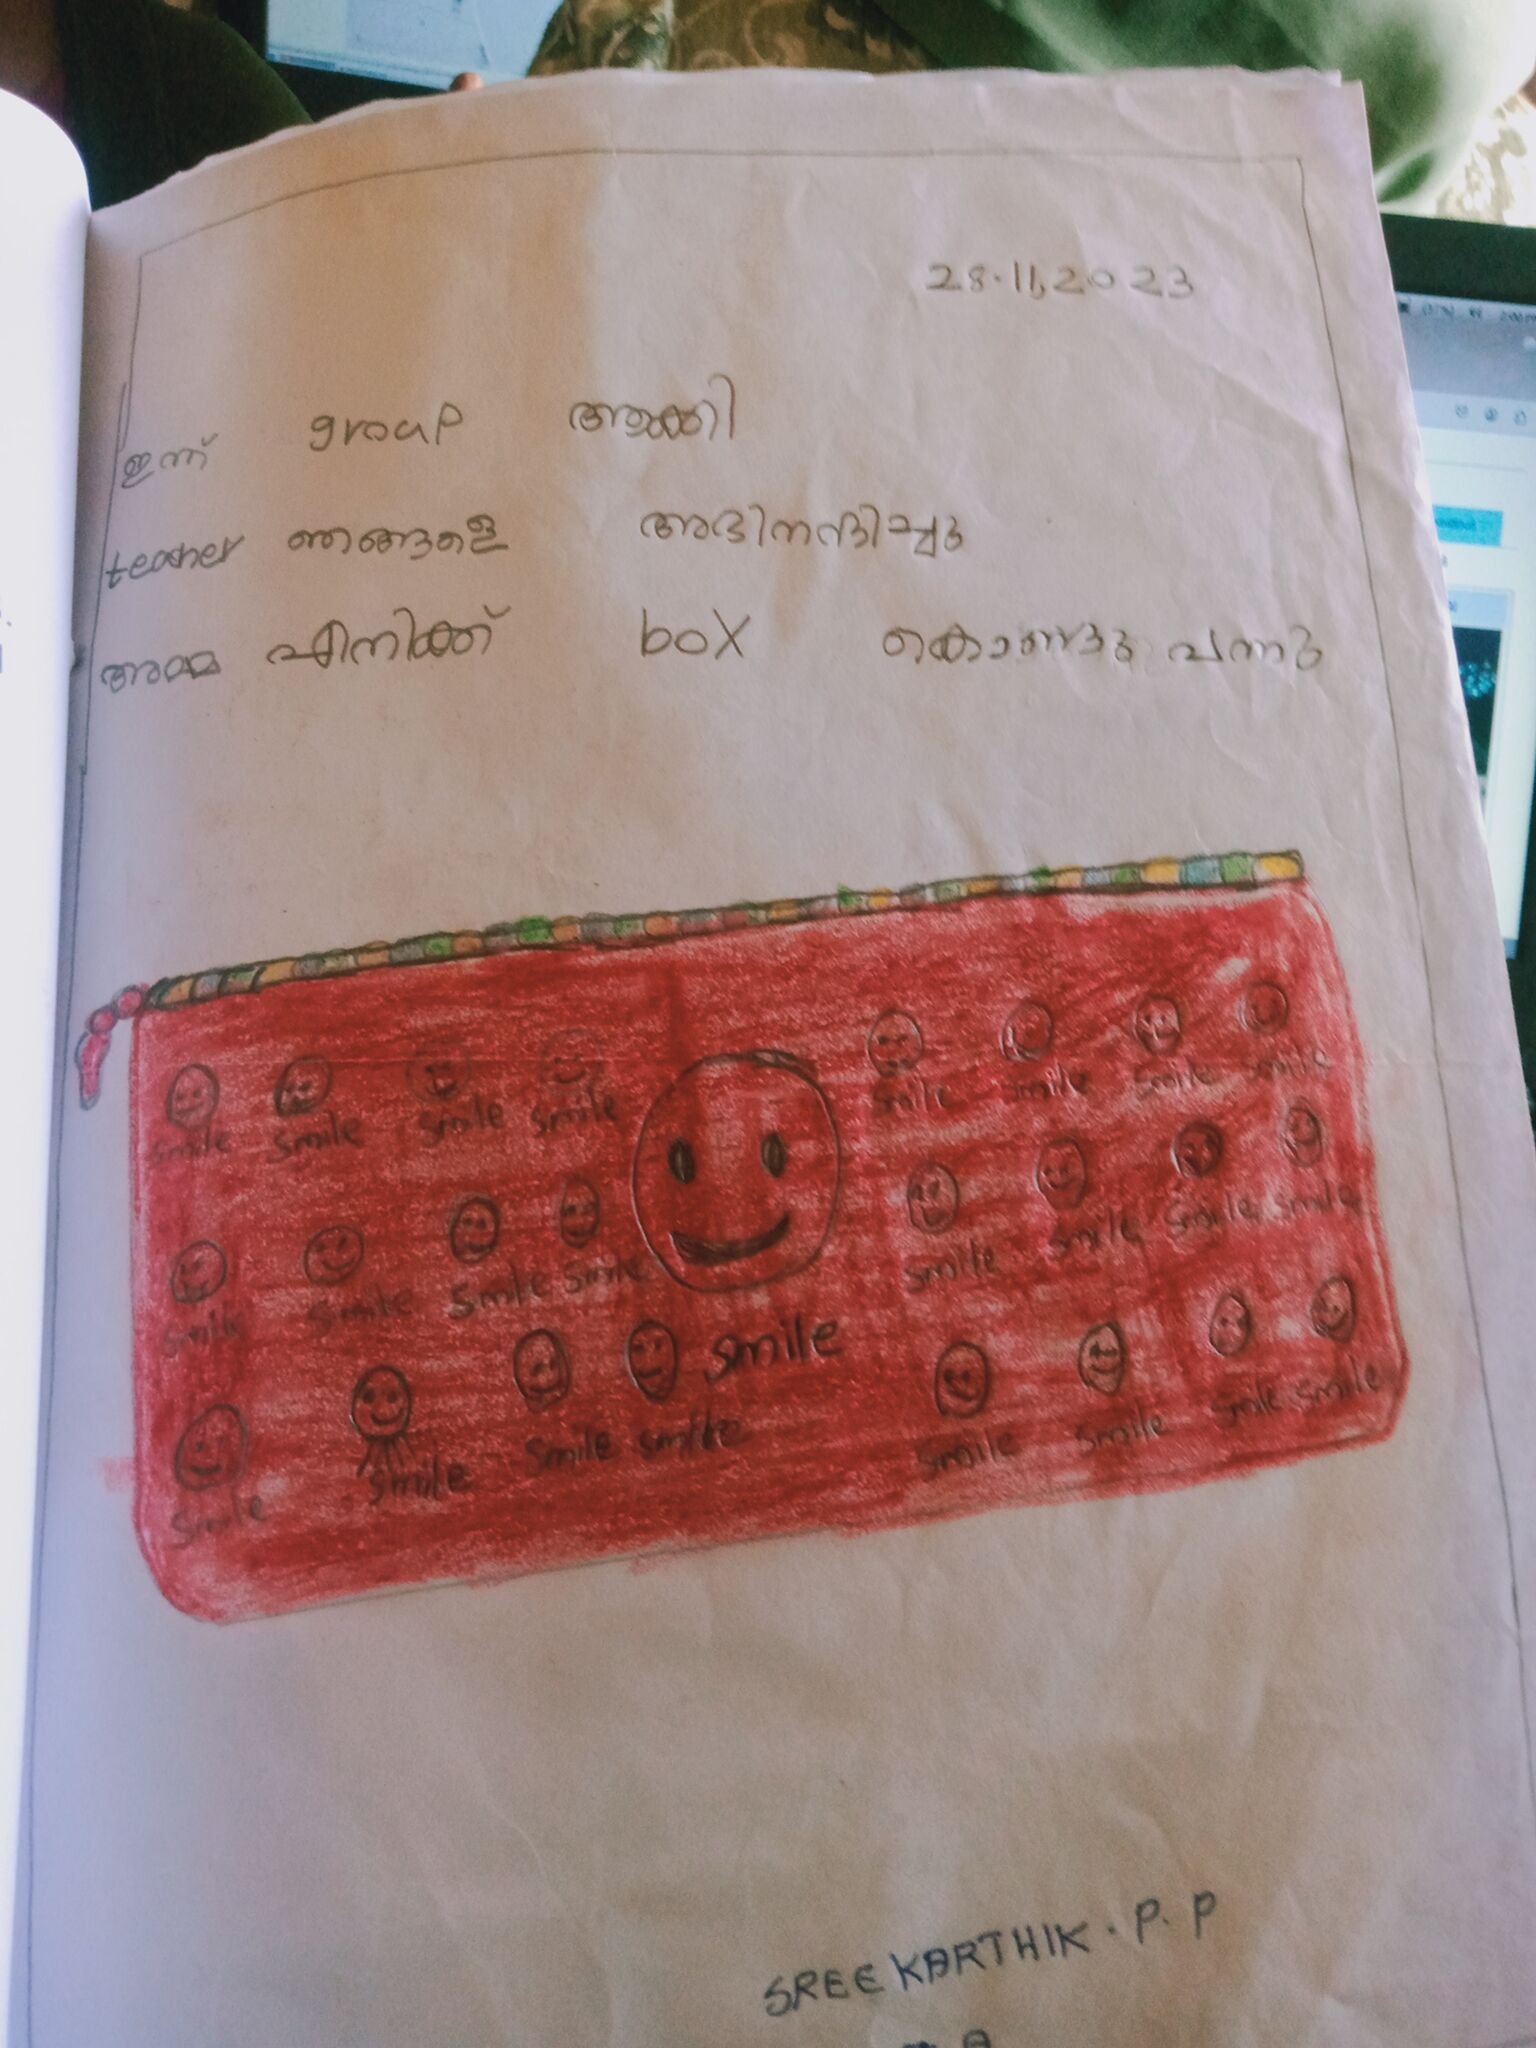 28.11.2023
ഇന്ന് group ആക്കി
teacher ഞങ്ങളെ അഭിനന്ദിച്ചു
അമ്മ എനിക്ക് box കൊണ്ടു വന്നു
smile smile smile smile smile smile smile smile
smile smile smile smile smile smile smile smile
smile
smile smile smile smile smile smile smile smile
SREE KARTHIK . P. P